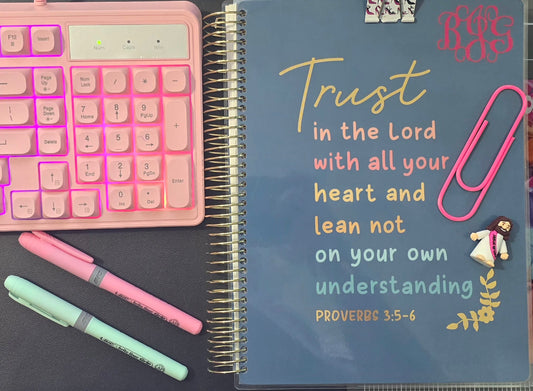 F12
Insert
Num
Caps
Win
Page
Up
Num
Lock
/
*
-
7
Home
8
9
PgUp
+
Page
Down
4
5
6
Delete
1
End
2
3
PgDn
Enter
0
Ins
.
Del
BJG
Trust
in the Lord
with all your
heart and
lean not
on your own
understanding
PROVERBS 3:5-6